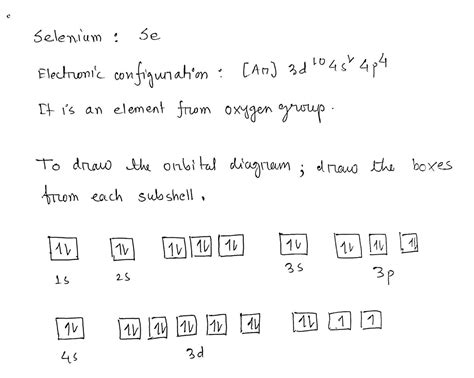 Selenium : Se
Electronic configuration : [Ar] 3d¹⁰ 4s² 4p⁴
It is an element from oxygen group.
To draw the orbital diagram ; draw the boxes
from each subshell.
1s 2s 3s 3p
4s 3d